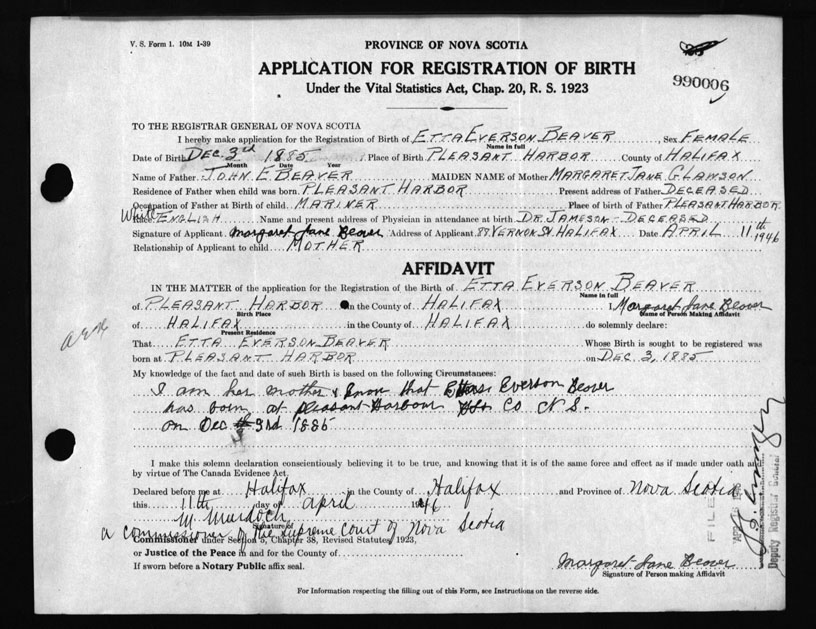 V. S. Form 1. 10M 1-39
PROVINCE OF NOVA SCOTIA
990006
APPLICATION FOR REGISTRATION OF BIRTH
Under the Vital Statistics Act, Chap. 20, R. S. 1923
TO THE REGISTRAR GENERAL OF NOVA SCOTIA
I hereby make application for the Registration of Birth of ETTA EVERSON BEAVER, Sex FEMALE
Name in full
Date of Birth DEC. 3rd 1885 Place of Birth PLEASANT HARBOR County of HALIFAX
Month Date Year
Name of Father JOHN E. BEAVER MAIDEN NAME of Mother MARGARET JANE G. LAWSON
Residence of Father when child was born PLEASANT HARBOR Present address of Father DECEASED
Occupation of Father at Birth of child MARINER Place of birth of Father PLEASANT HARBOR
White
Race ENGLISH Name and present address of Physician in attendance at birth DR. JAMESON - DECEASED
Signature of Applicant Margaret Jane Beaver Address of Applicant VERNON St. HALIFAX Date APRIL 11th 1946
Relationship of Applicant to child MOTHER
AFFIDAVIT
IN THE MATTER of the application for the Registration of the Birth of ETTA EVERSON BEAVER
Name in full
of PLEASANT HARBOR in the County of HALIFAX, Margaret Jane Beaver
Birth Place Name of Person Making Affidavit
of HALIFAX in the County of HALIFAX do solemnly declare:
Present Residence
That ETTA EVERSON BEAVER Whose Birth is sought to be registered was
born at PLEASANT HARBOR on DEC. 3, 1885
My knowledge of the fact and date of such Birth is based on the following Circumstances:
I am her mother & know that Etta Everson Beaver
was born at Pleasant Harbour Hfx Co N.S.
on Dec 3rd 1885
I make this solemn declaration conscientiously believing it to be true, and knowing that it is of the same force and effect as if made under oath and
by virtue of The Canada Evidence Act.
Declared before me at Halifax in the County of Halifax and Province of Nova Scotia
this 11th day of April 1946
M Murdoch
Signature of
a commissioner of the Supreme Court of Nova Scotia
Commissioner under Section 5, Chapter 38, Revised Statutes, 1923,
or Justice of the Peace in and for the County of
If sworn before a Notary Public affix seal.
Margaret Jane Beaver
Signature of Person making Affidavit
For Information respecting the filling out of this Form, see Instructions on the reverse side.
FILED
Deputy Registrar General